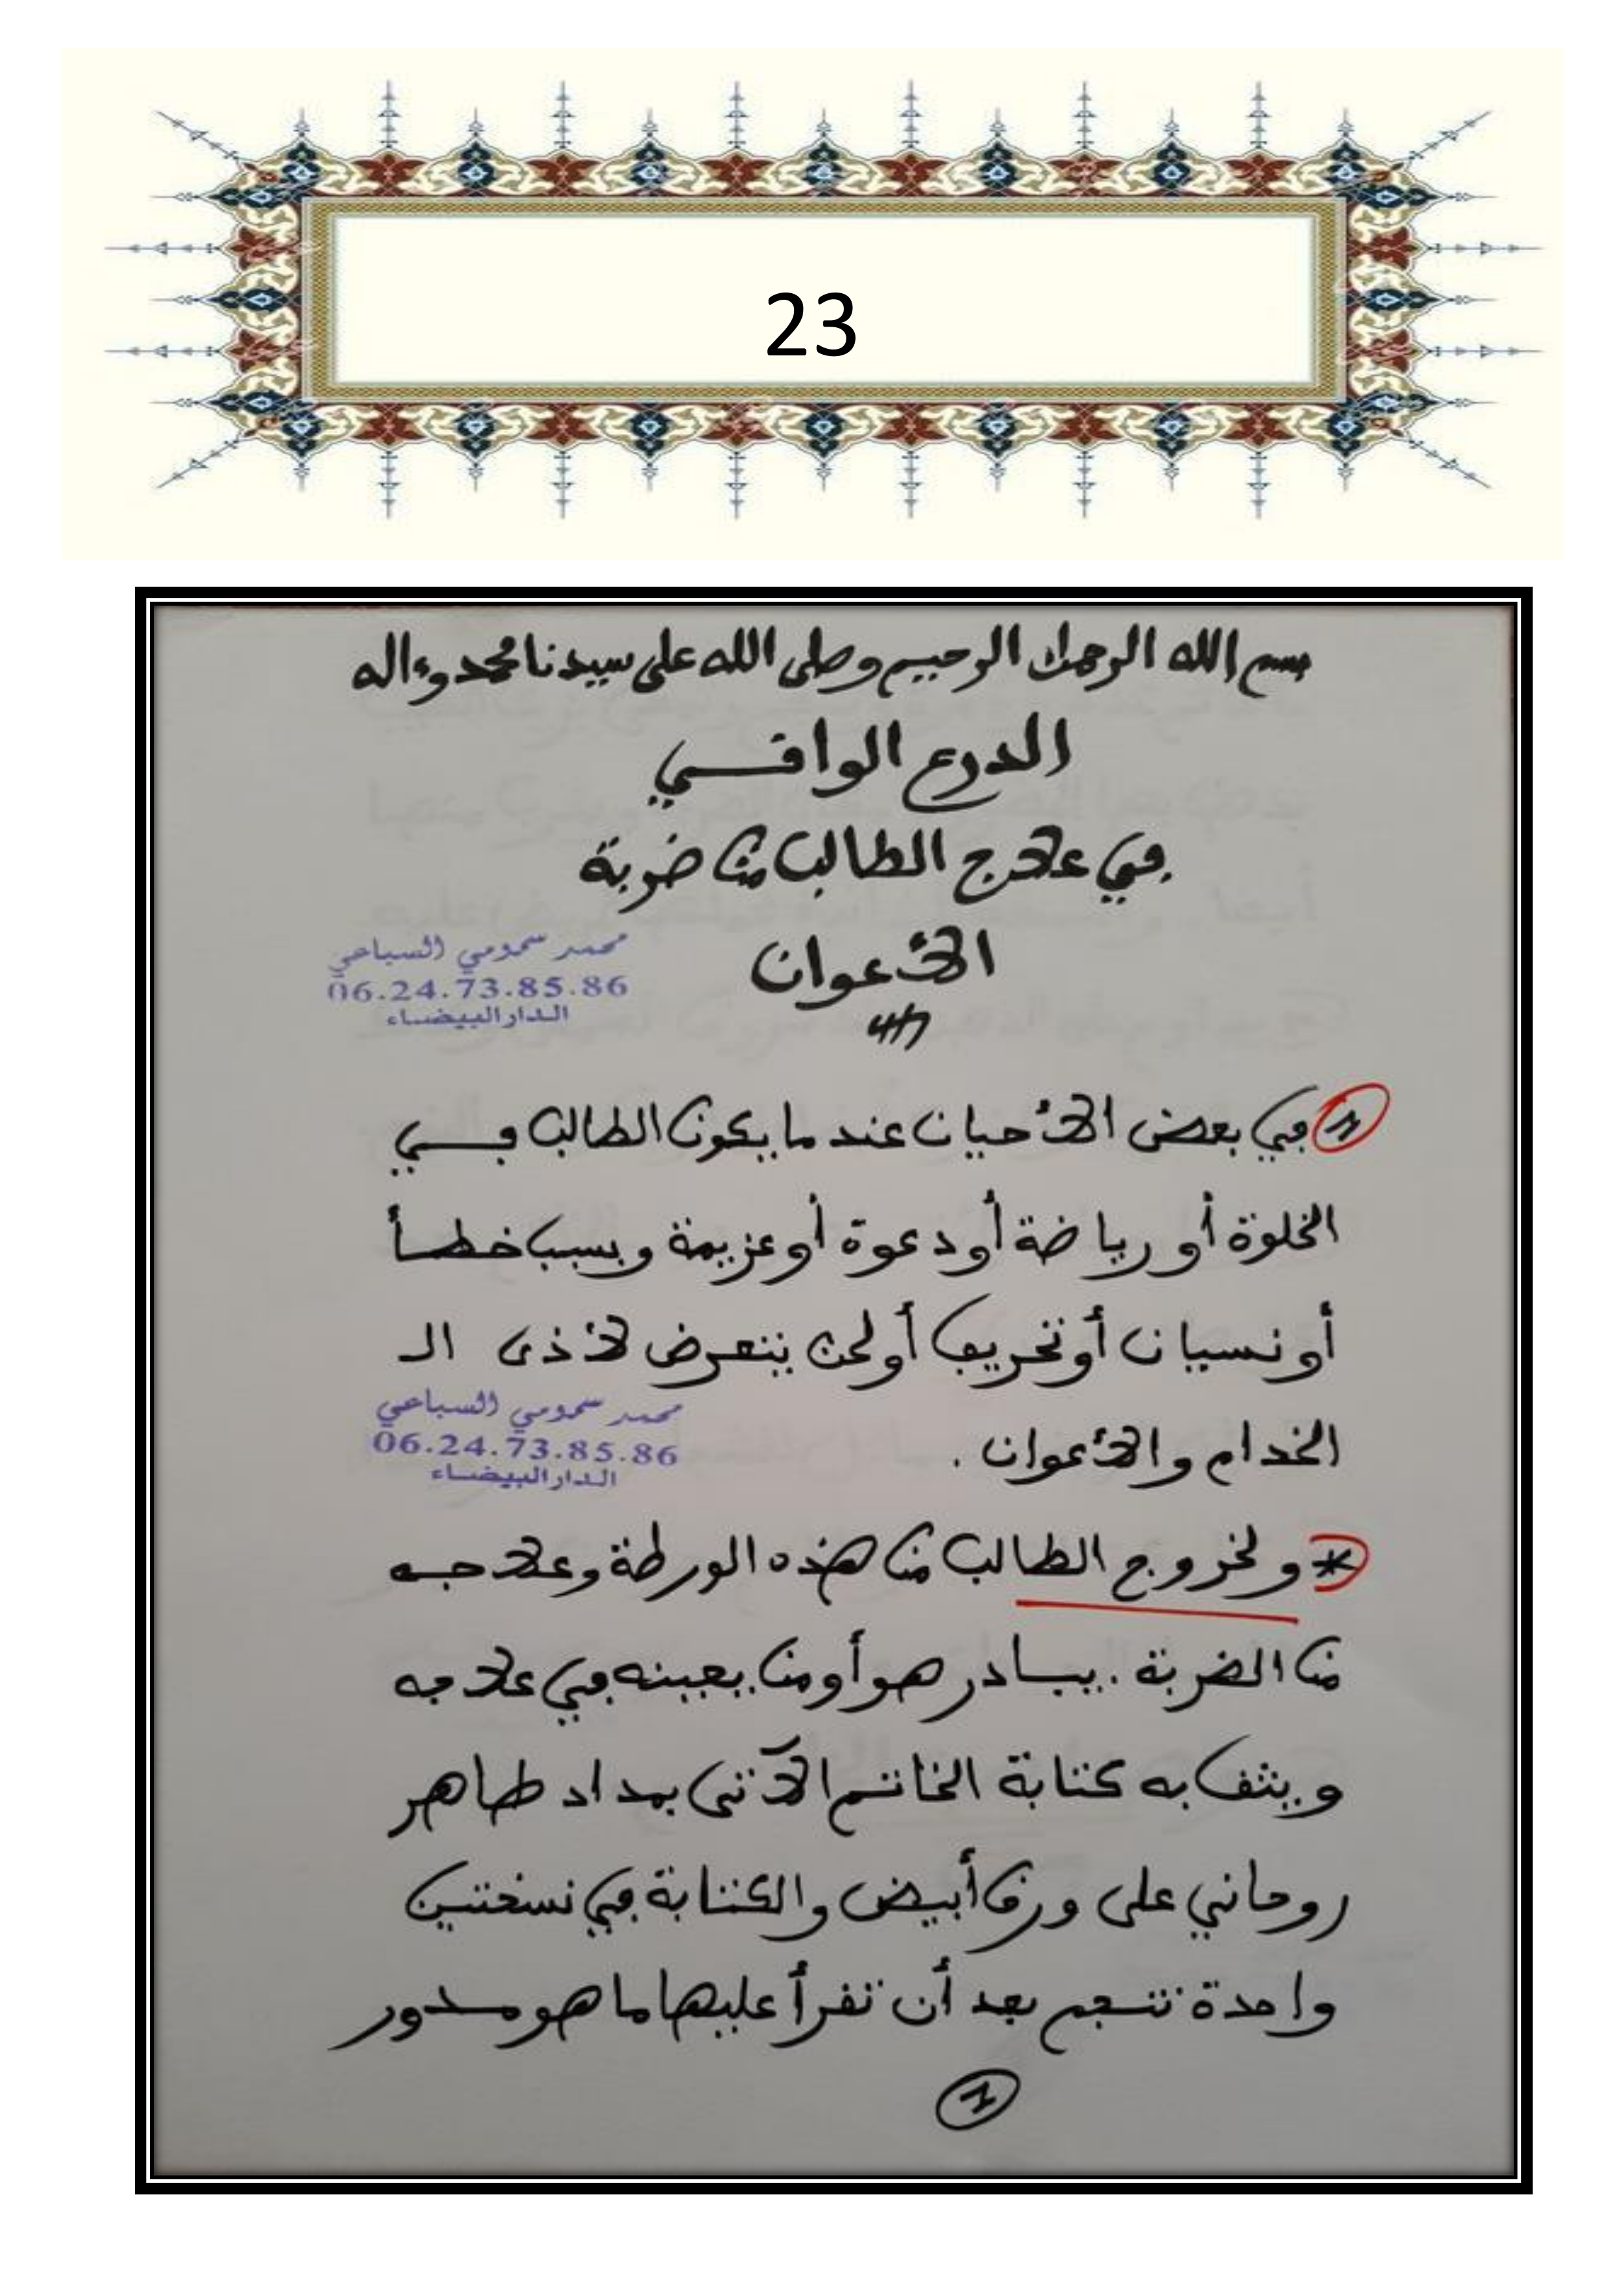 23
بسم الله الرحمن الرحيم وصلى الله على سيدنا محمد وءاله
الدرع الواقي
في علاج الطالب من ضربة
الأعوان
محمد سمومي السباعي
06.24.73.85.86
الدار البيضاء
في بعض الأحيان عند ما يكون الطالب في
الخلوة أو رياضة أو دعوة أو عزيمة وبسبب خطأ
أو نسيان أو تخريف أو لحن يتعرض لأذى الـ
الخدام والأعوان .
محمد سمومي السباعي
06.24.73.85.86
الدار البيضاء
* ولخروج الطالب من هذه الورطة وعلاجه
من الضربة . يبادر هو أو من يعينه في علاجه
ويثف به كتابة الخاتم الآتي بمداد طاهر
روحاني على ورق أبيض والكتابة في نسختين
واحدة بعد أن تقرأ عليها ما هو مدور
1